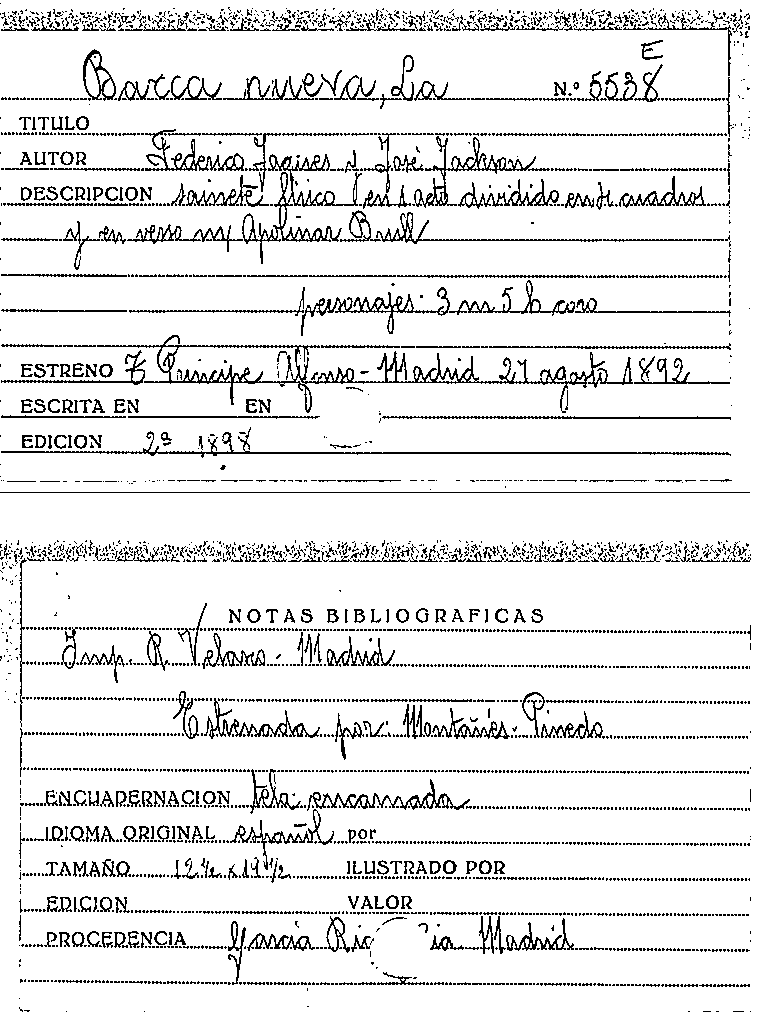 E
Barca nueva, La N.º 5538
TITULO
AUTOR Federico Jaques y José Jackson
DESCRIPCION sainete lírico en 1 acto dividido en cuadros
y en verso Apolinar Brull
personajes: 3 m 5 h coro
ESTRENO T Principe Alfonso - Madrid 27 agosto 1892
ESCRITA EN EN
EDICION 2ª 1898
NOTAS BIBLIOGRAFICAS
Imp. R. Velasco - Madrid
Estrenada por: Montañés - Pinedo
ENCUADERNACION tela encarnada
IDIOMA ORIGINAL español por
TAMAÑO 12 ½ x 19 ½ ILUSTRADO POR
EDICION VALOR
PROCEDENCIA García Madrid